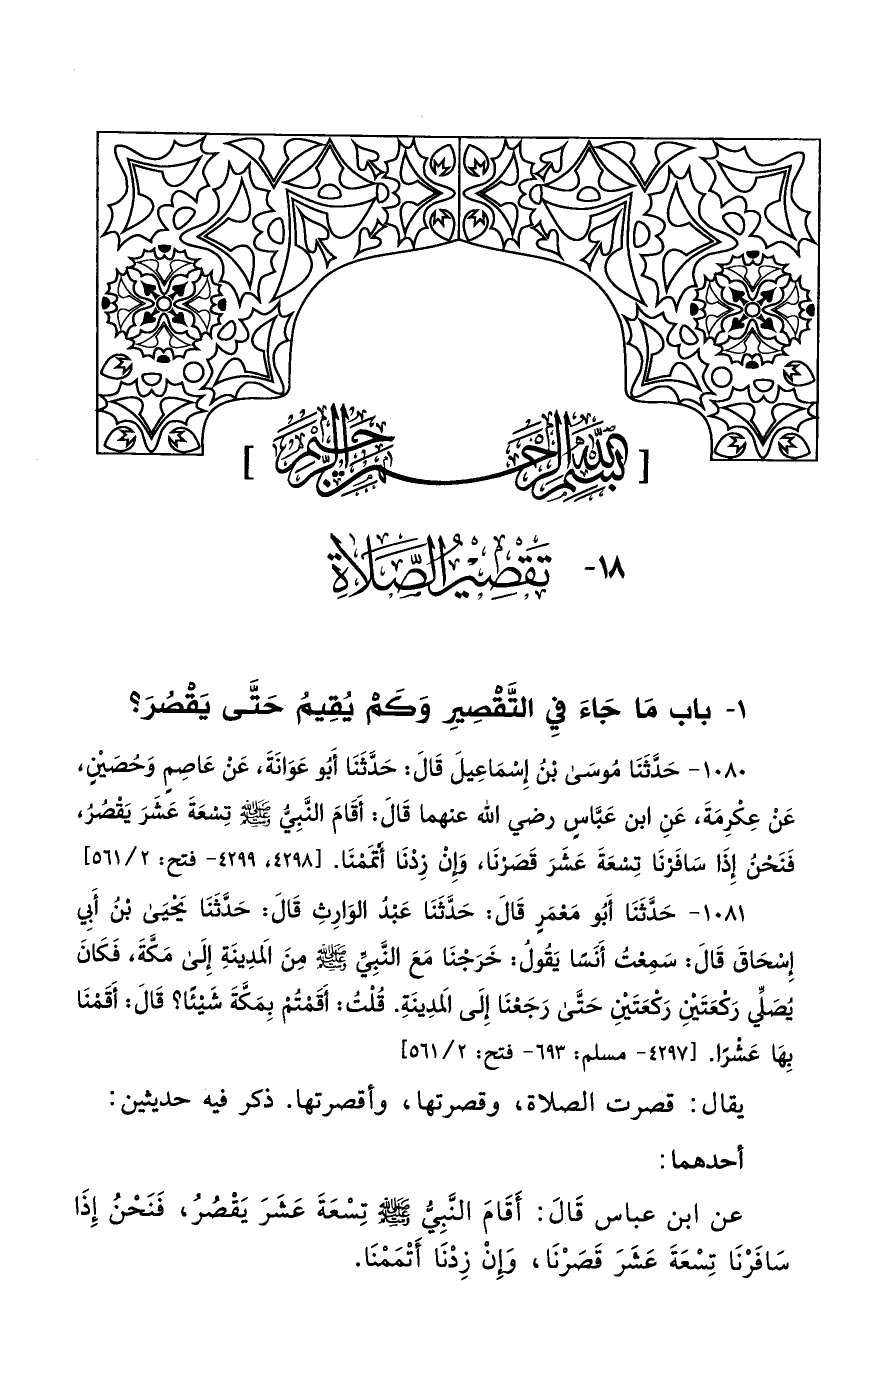 [بسم الله الرحمن الرحيم]
١٨- تَقْصِيْرُ الصَّلَاةِ
١- باب مَا جَاءَ فِي التَّقْصِيرِ وَكَمْ يُقِيمُ حَتَّى يَقْصُرَ؟
١٠٨٠- حَدَّثَنَا مُوسَىٰ بْنُ إِسْمَاعِيلَ قَالَ: حَدَّثَنَا أَبُو عَوَانَةَ، عَنْ عَاصِمٍ وَحُصَيْنٍ،
عَنْ عِكْرِمَةَ، عَنِ ابن عَبَّاسٍ رضي الله عنهما قَالَ: أَقَامَ النَّبِيُّ ﷺ تِسْعَةَ عَشَرَ يَقْصُرُ،
فَنَحْنُ إِذَا سَافَرْنَا تِسْعَةَ عَشَرَ قَصَرْنَا، وَإِنْ زِدْنَا أَتْمَمْنَا. [٤٢٩٨، ٤٢٩٩- فتح: ٢/ ٥٦١]
١٠٨١- حَدَّثَنَا أَبُو مَعْمَرٍ قَالَ: حَدَّثَنَا عَبْدُ الوَارِثِ قَالَ: حَدَّثَنَا يَحْيَىٰ بْنُ أَبِي
إِسْحَاقَ قَالَ: سَمِعْتُ أَنَسًا يَقُولُ: خَرَجْنَا مَعَ النَّبِيِّ ﷺ مِنَ المَدِينَةِ إِلَىٰ مَكَّةَ، فَكَانَ
يُصَلِّي رَكْعَتَيْنِ رَكْعَتَيْنِ حَتَّىٰ رَجَعْنَا إِلَى المَدِينَةِ. قُلْتُ: أَقَمْتُمْ بِمَكَّةَ شَيْئًا؟ قَالَ: أَقَمْنَا
بِهَا عَشْرًا. [٤٢٩٧- مسلم: ٦٩٣- فتح: ٢/ ٥٦١]
يقال: قصرت الصلاة، وقصرتها، وأقصرتها. ذكر فيه حديثين:
أحدهما:
عن ابن عباس قَالَ: أَقَامَ النَّبِيُّ ﷺ تِسْعَةَ عَشَرَ يَقْصُرُ، فَنَحْنُ إِذَا
سَافَرْنَا تِسْعَةَ عَشَرَ قَصَرْنَا، وَإِنْ زِدْنَا أَتْمَمْنَا.